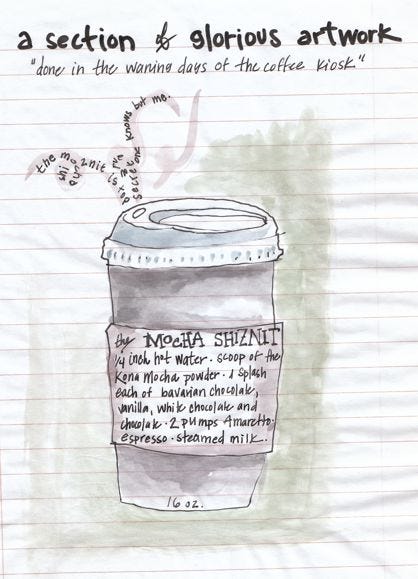 a section of glorious artwork
"done in the waning days of the coffee kiosk"
the
znit is
secret one knows but me.
the MOCHA SHIZNIT
1/4 inch hot water · scoop of the
Kona Mocha powder · 1 splash
each of bavarian chocolate,
vanilla, white chocolate and
chocolate · 2 pumps Amaretto ·
espresso · steamed milk..
16 oz.